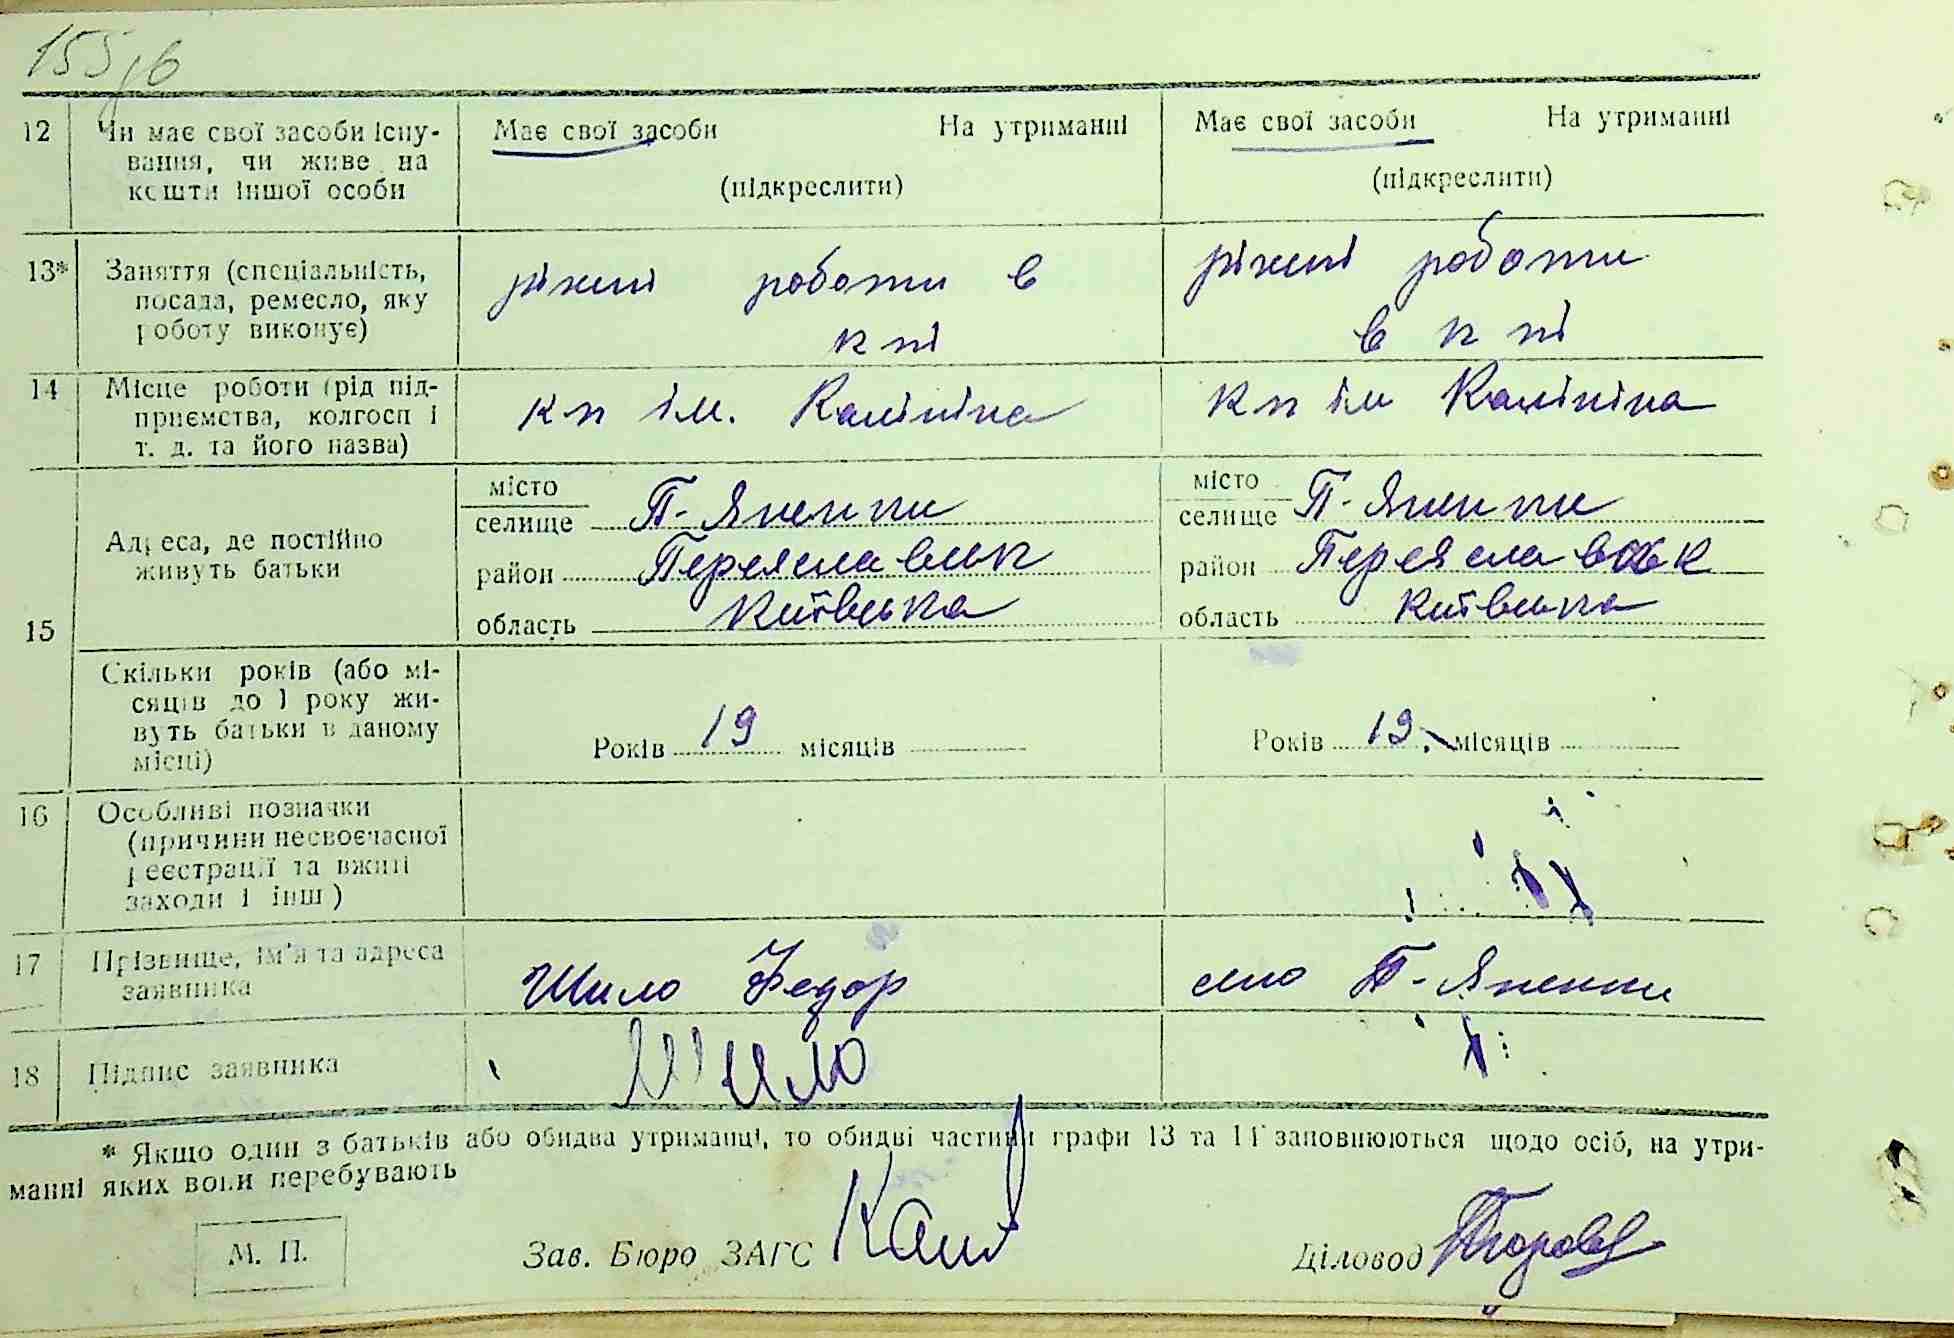 12 Чи має свої засоби існу-
вання, чи живе на
кошти іншої особи
Має свої засоби На утриманні
(підкреслити)
Має свої засоби На утриманні
(підкреслити)
13* Заняття (спеціальність,
посада, ремесло, яку
роботу виконує)
ріжні роботи в
к пі
ріжні роботи
в к пі
14 Місце роботи (рід під-
приємства, колгосп і
т. д. та його назва)
кп ім. Калініна
кп ім Калініна
15 Адреса, де постійно
живуть батьки
місто
селище П-Яненки
район Переяславськ
область Київська
місто
селище П-Яненки
район Переяславськ
область Київська
Скільки років (або мі-
сяців до 1 року жи-
вуть батьки в даному
місці)
Років 19 місяців
Років 19. місяців
16 Особливі позначки
(причини несвоєчасної
реєстрації та вжиті
заходи і інш)
17 Прізвище, ім'я та адреса
заявника
Шило Федор
село П-Яненки
18 Підпис заявника
Шило
* Якщо один з батьків або обидва утриманці, то обидві частини графи 13 та 14 заповнюються щодо осіб, на утри-
манні яких вони перебувають
М. П.
Зав. Бюро ЗАГС
Діловод